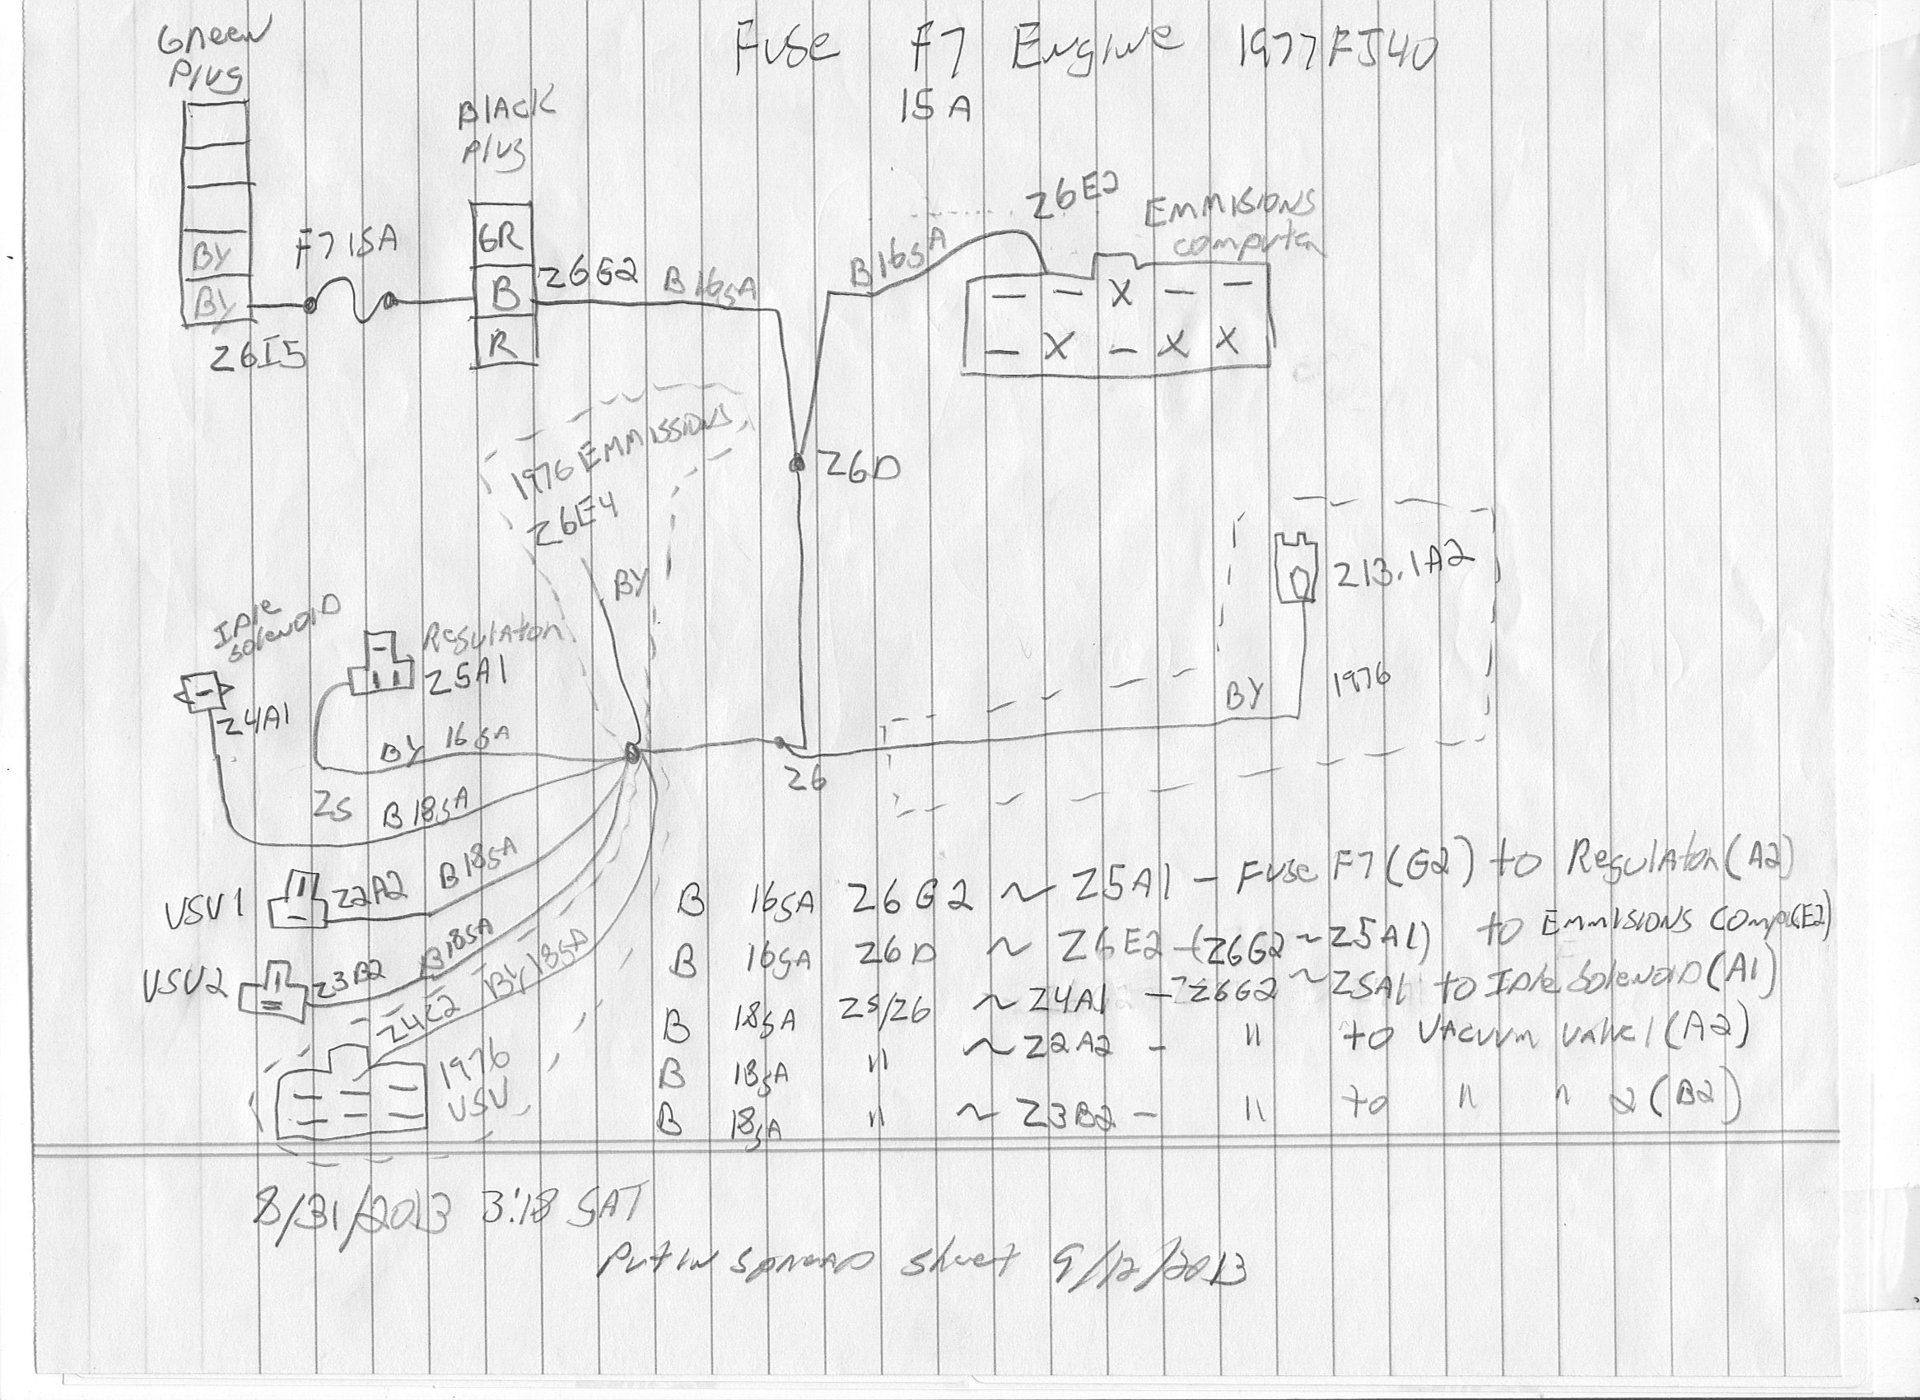 Fuse F7 Engine 1977 FJ40
15A
Green
Plug
BY
BY
F7 15A
Z6I5
Black
Plug
GR
B
R
Z6G2
B 16GA
B 16GA
Z6E2
Emmisions
Computer
— — X — —
— X — X X
Z6D
1976 Emmissions
Z6E4
BY
Z13.1A2
BY
1976
Z6
Idle
Solenoid
Z4A1
Regulator
Z5A1
BY 16GA
Z5
B 18GA
VSV1
Z2A2
B 18GA
VSV2
Z3B2
B 18GA
Z4Z2
BY 18GA
1976
VSV
B 16GA Z6G2 ~ Z5A1 – Fuse F7 (G2) to Regulator (A2)
B 16GA Z6D ~ Z6E2 – (Z6G2 ~ Z5A1) to Emmisions Comp (E2)
B 18GA Z5/Z6 ~ Z4A1 – Z6G2 ~ Z5A1 to Idle Solenoid (A1)
B 18GA " ~ Z2A2 – " to Vacuum Valve 1 (A2)
B 18GA " ~ Z3B2 – " to " " 2 (B2)
8/31/2013 3:18 SAT
Put in spread sheet 9/12/2013